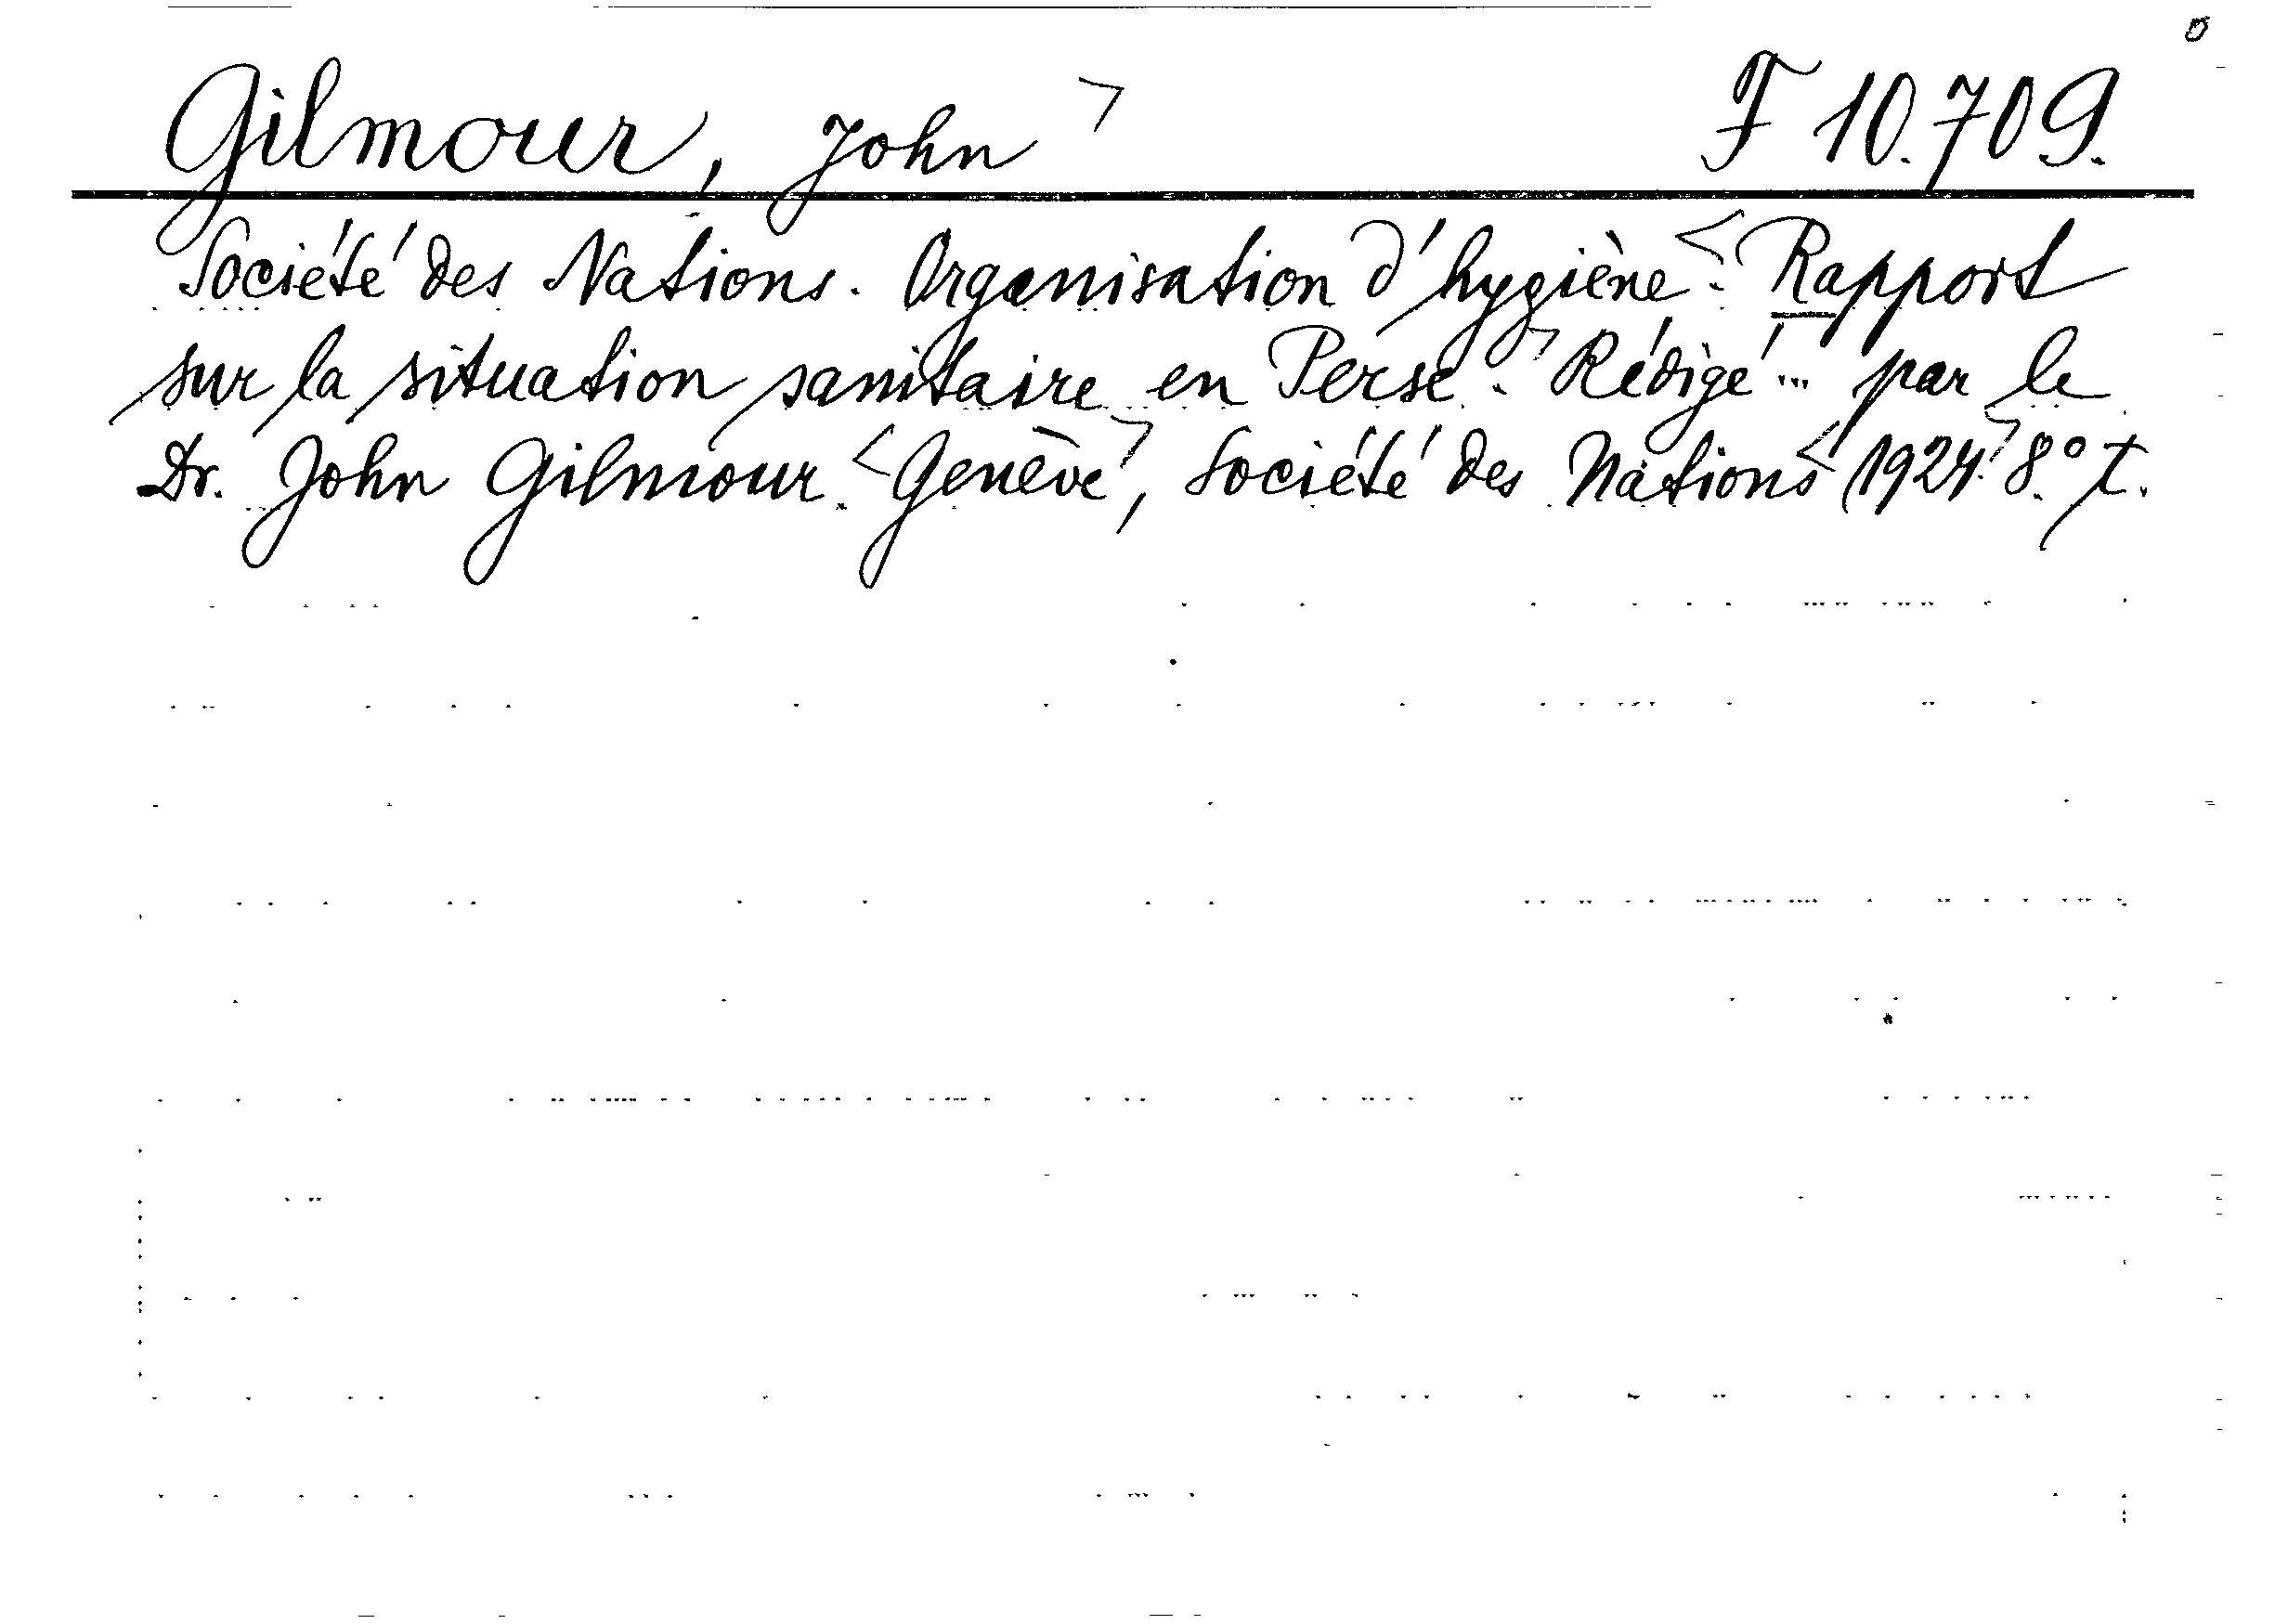 Gilmour, John F 10.709.
Société des Nations. Organisation d'hygiène. Rapport
sur la situation sanitaire en Perse. Rédigé ... par le
Dr. John Gilmour. Genève, Société des Nations 1924. 8.° T.